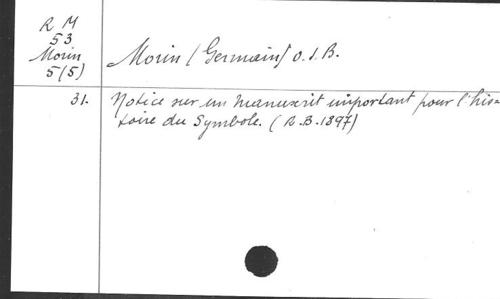 R M
53
Morin
5(5)
Morin (Germain) O.S.B.
31.
Notice sur un manuscrit important pour l'his-
toire du Symbole. (R.B.1897)